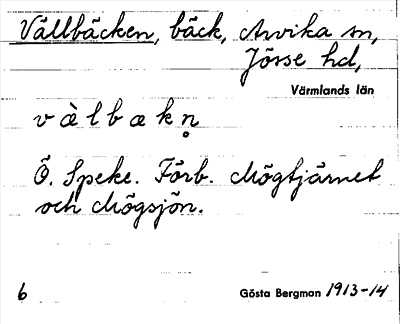 Vällbäcken, bäck, Arvika sn,
Jösse hd,
Värmlands län
v æ̀ l b æ k n̥
Ö. Speke. Förb. Högtjärnet
och Högsjön.
6
Gösta Bergman 1913-14